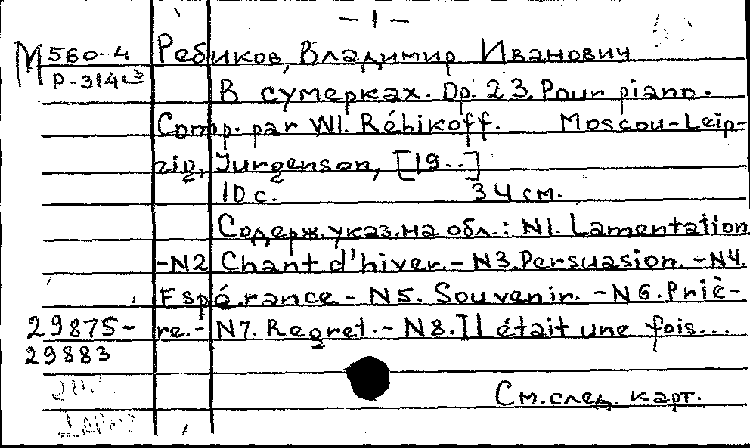 - 1 -
М 560-4 Ребиков, Владимир Иванович
Р-314
В сумерках. Op. 23. Pour piano.
Comp. par Wl. Rébikoff. Moscou-Leip-
zig, Jurgenson, [19..]
10 с. 34 см.
Содерж. указ. на обл.: N1. Lamentation
-N2 Chant d'hiver.- N3. Persuasion. -N4.
Espérance - N5. Souvenir. - N6. Priè-
29875- re.- N7. Regret.- N8. Il était une fois...
29883
См. след. карт.